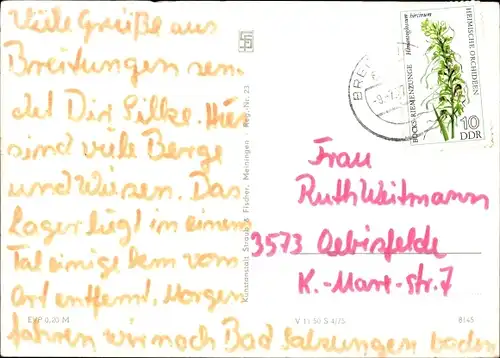 Viele Grüße aus
Breitungen sen-
det Dir Silke. Hier
sind viele Berge
und Wiesen. Das
Lager liegt in einem
Tal einige km vom
Ort entfernt. Morgen
fahren wir nach Bad Salzungen baden
Frau
Ruth Weitmann
3573 Oebisfelde
K.-Marx-Str. 7
Kunstanstalt Straub & Fischer, Meiningen Reg.-Nr. 23
EVP 0,20 M
V 11 50 S 4/75
8145
HEIMISCHE ORCHIDEEN
Himantoglossum hircinum
BOCKS-RIEMENZUNGE
10
DDR